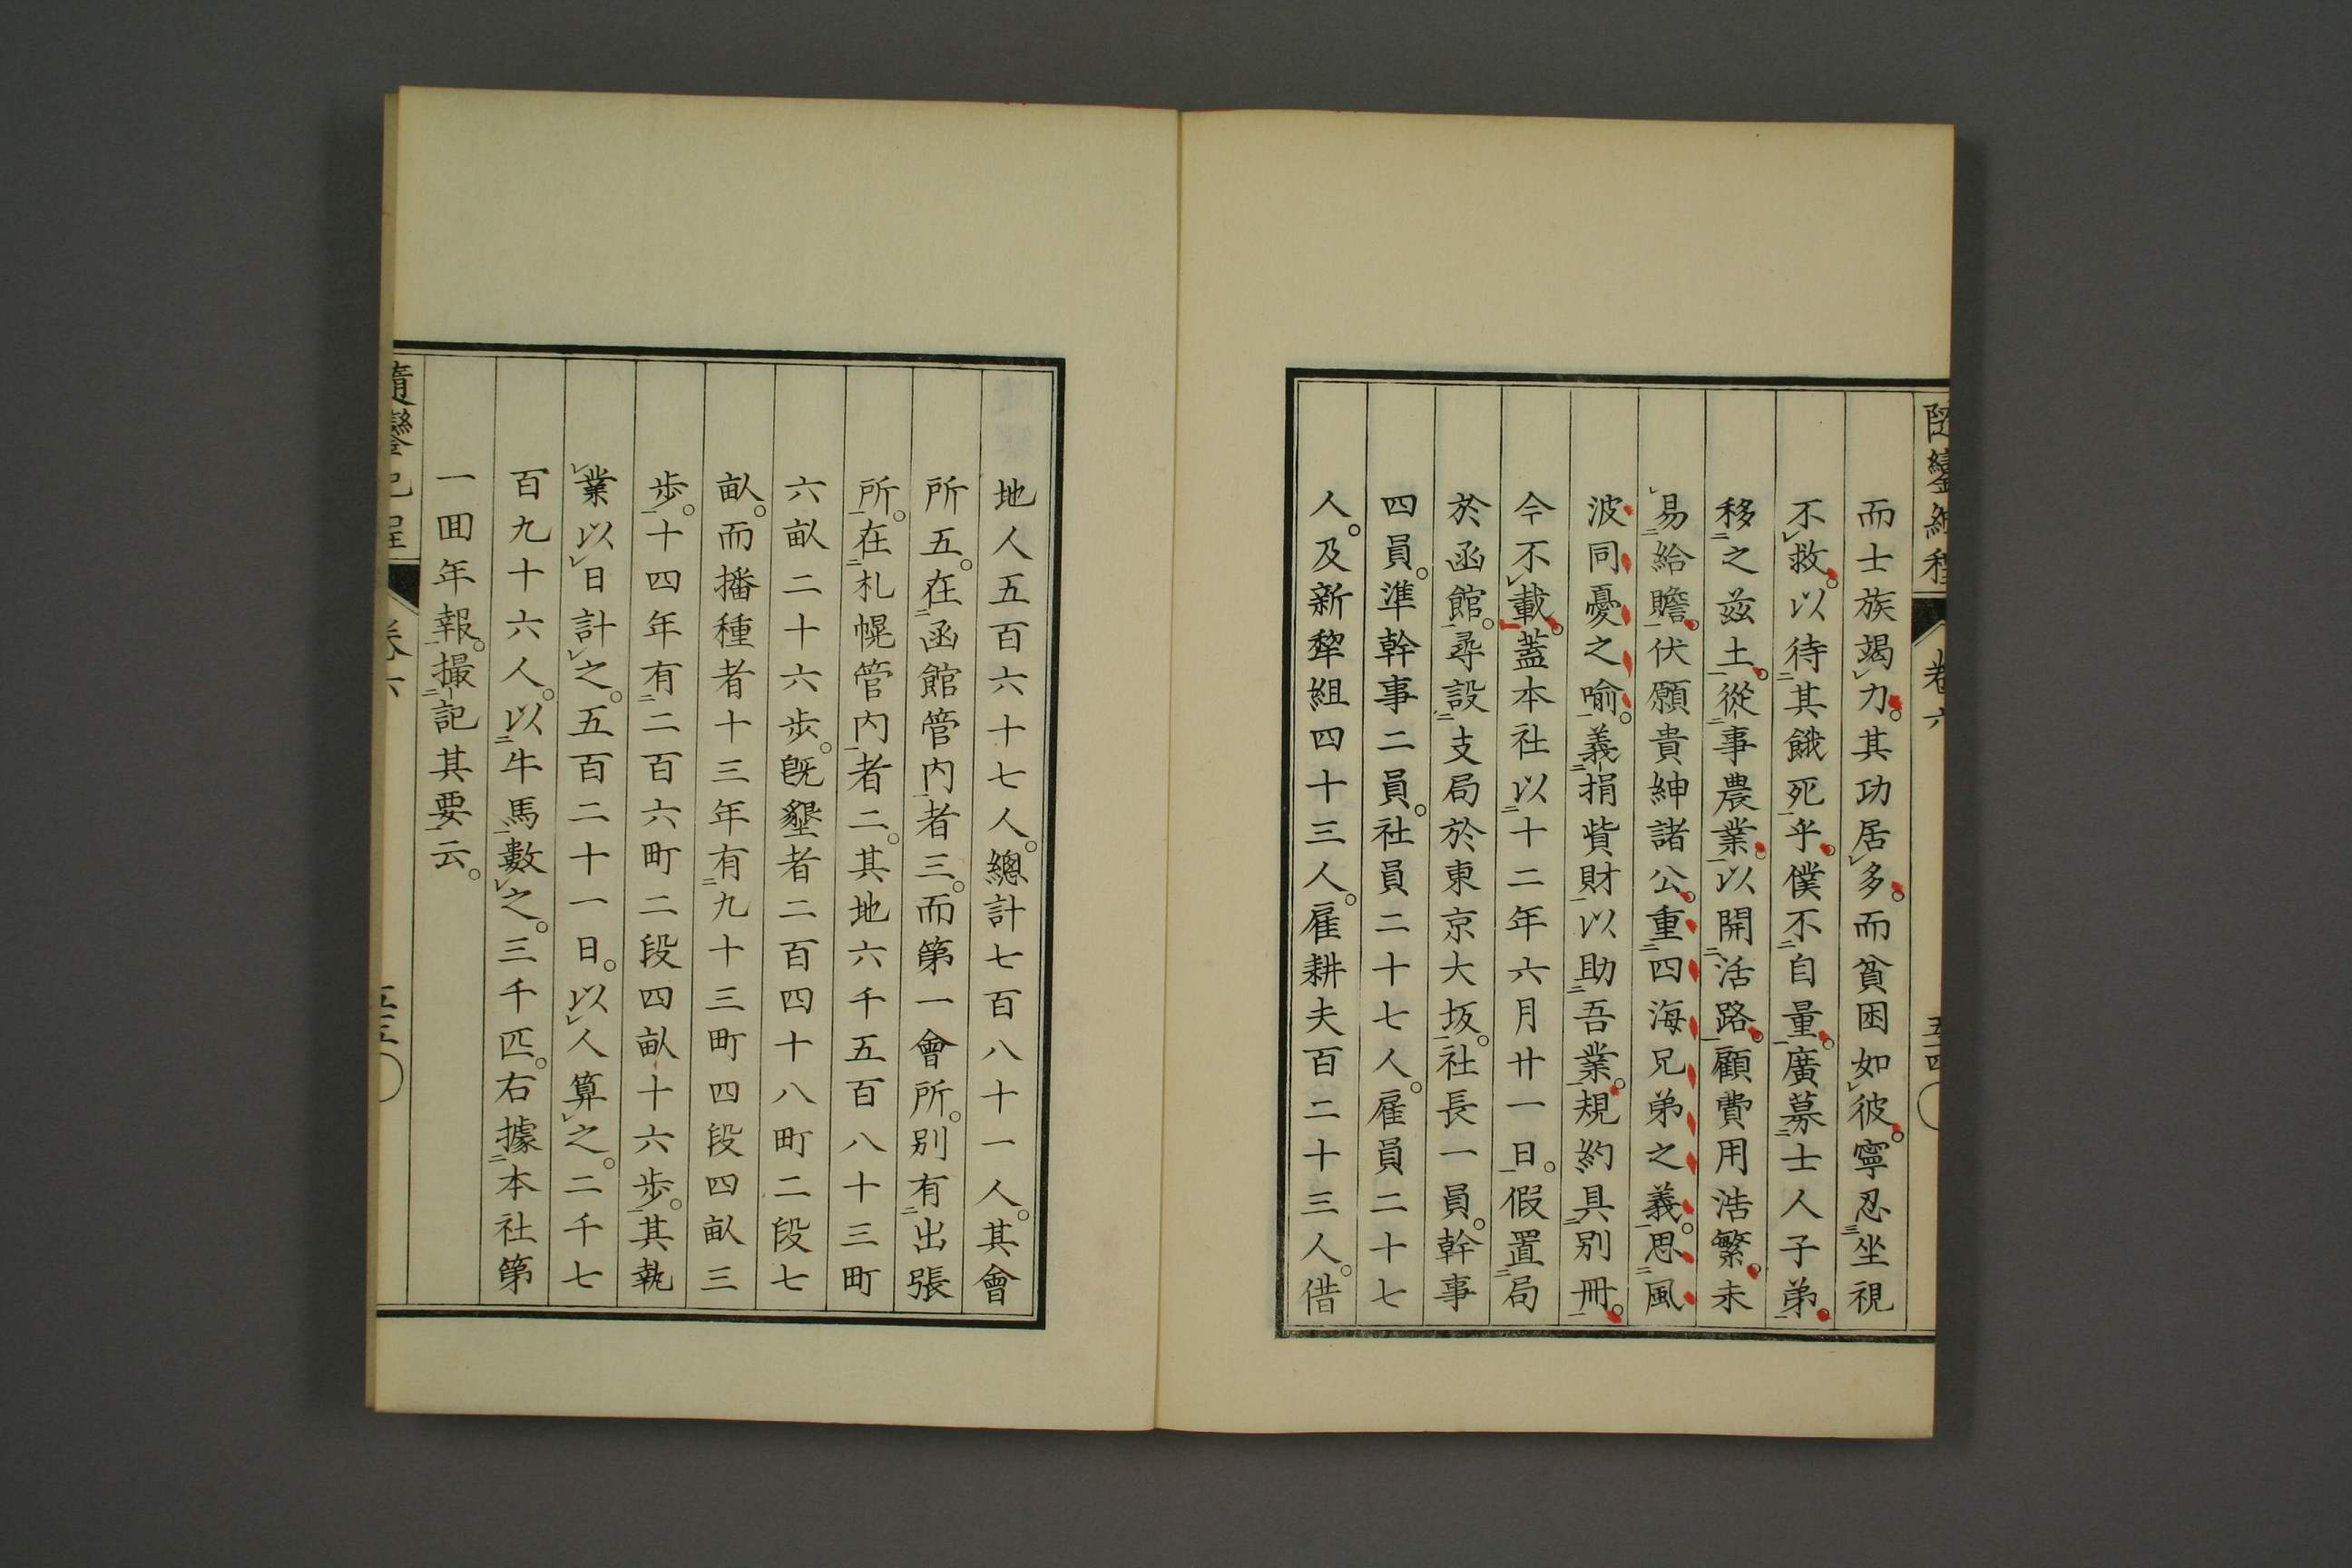 隨鑾紀程 卷六 五四
而士族竭力。其功居多。而貧困如彼。寧忍坐視
不救。以待其餓死乎。僕不自量。廣募士人子弟。
移之茲土。從事農業。以開活路。顧費用浩繁。未
易給贍。伏願貴紳諸公。重四海兄弟之義。思風
波同憂之喻。義捐貲財。以助吾業。規約具別冊。
今不載。蓋本社以十二年六月廿一日。假置局
於函館。尋設支局於東京大坂。社長一員。幹事
四員。準幹事二員。社員二十七人。雇員二十七
人。及新犂組四十三人。雇耕夫百二十三人。借
地人五百六十七人。總計七百八十一人。其會
所五。在函館管内者三。而第一會所。別有出張
所。在札幌管内者二。其地六千五百八十三町
六畝二十六歩。既墾者二百四十八町二段七
畝。而播種者十三年有九十三町四段四畝三
歩。十四年有二百六町二段四畝十六歩。其執
業以日計之。五百二十一日。以人算之。二千七
百九十六人。以牛馬數之。三千匹。右據本社第
一回年報。撮記其要云。
隨鑾紀程 卷六 五五